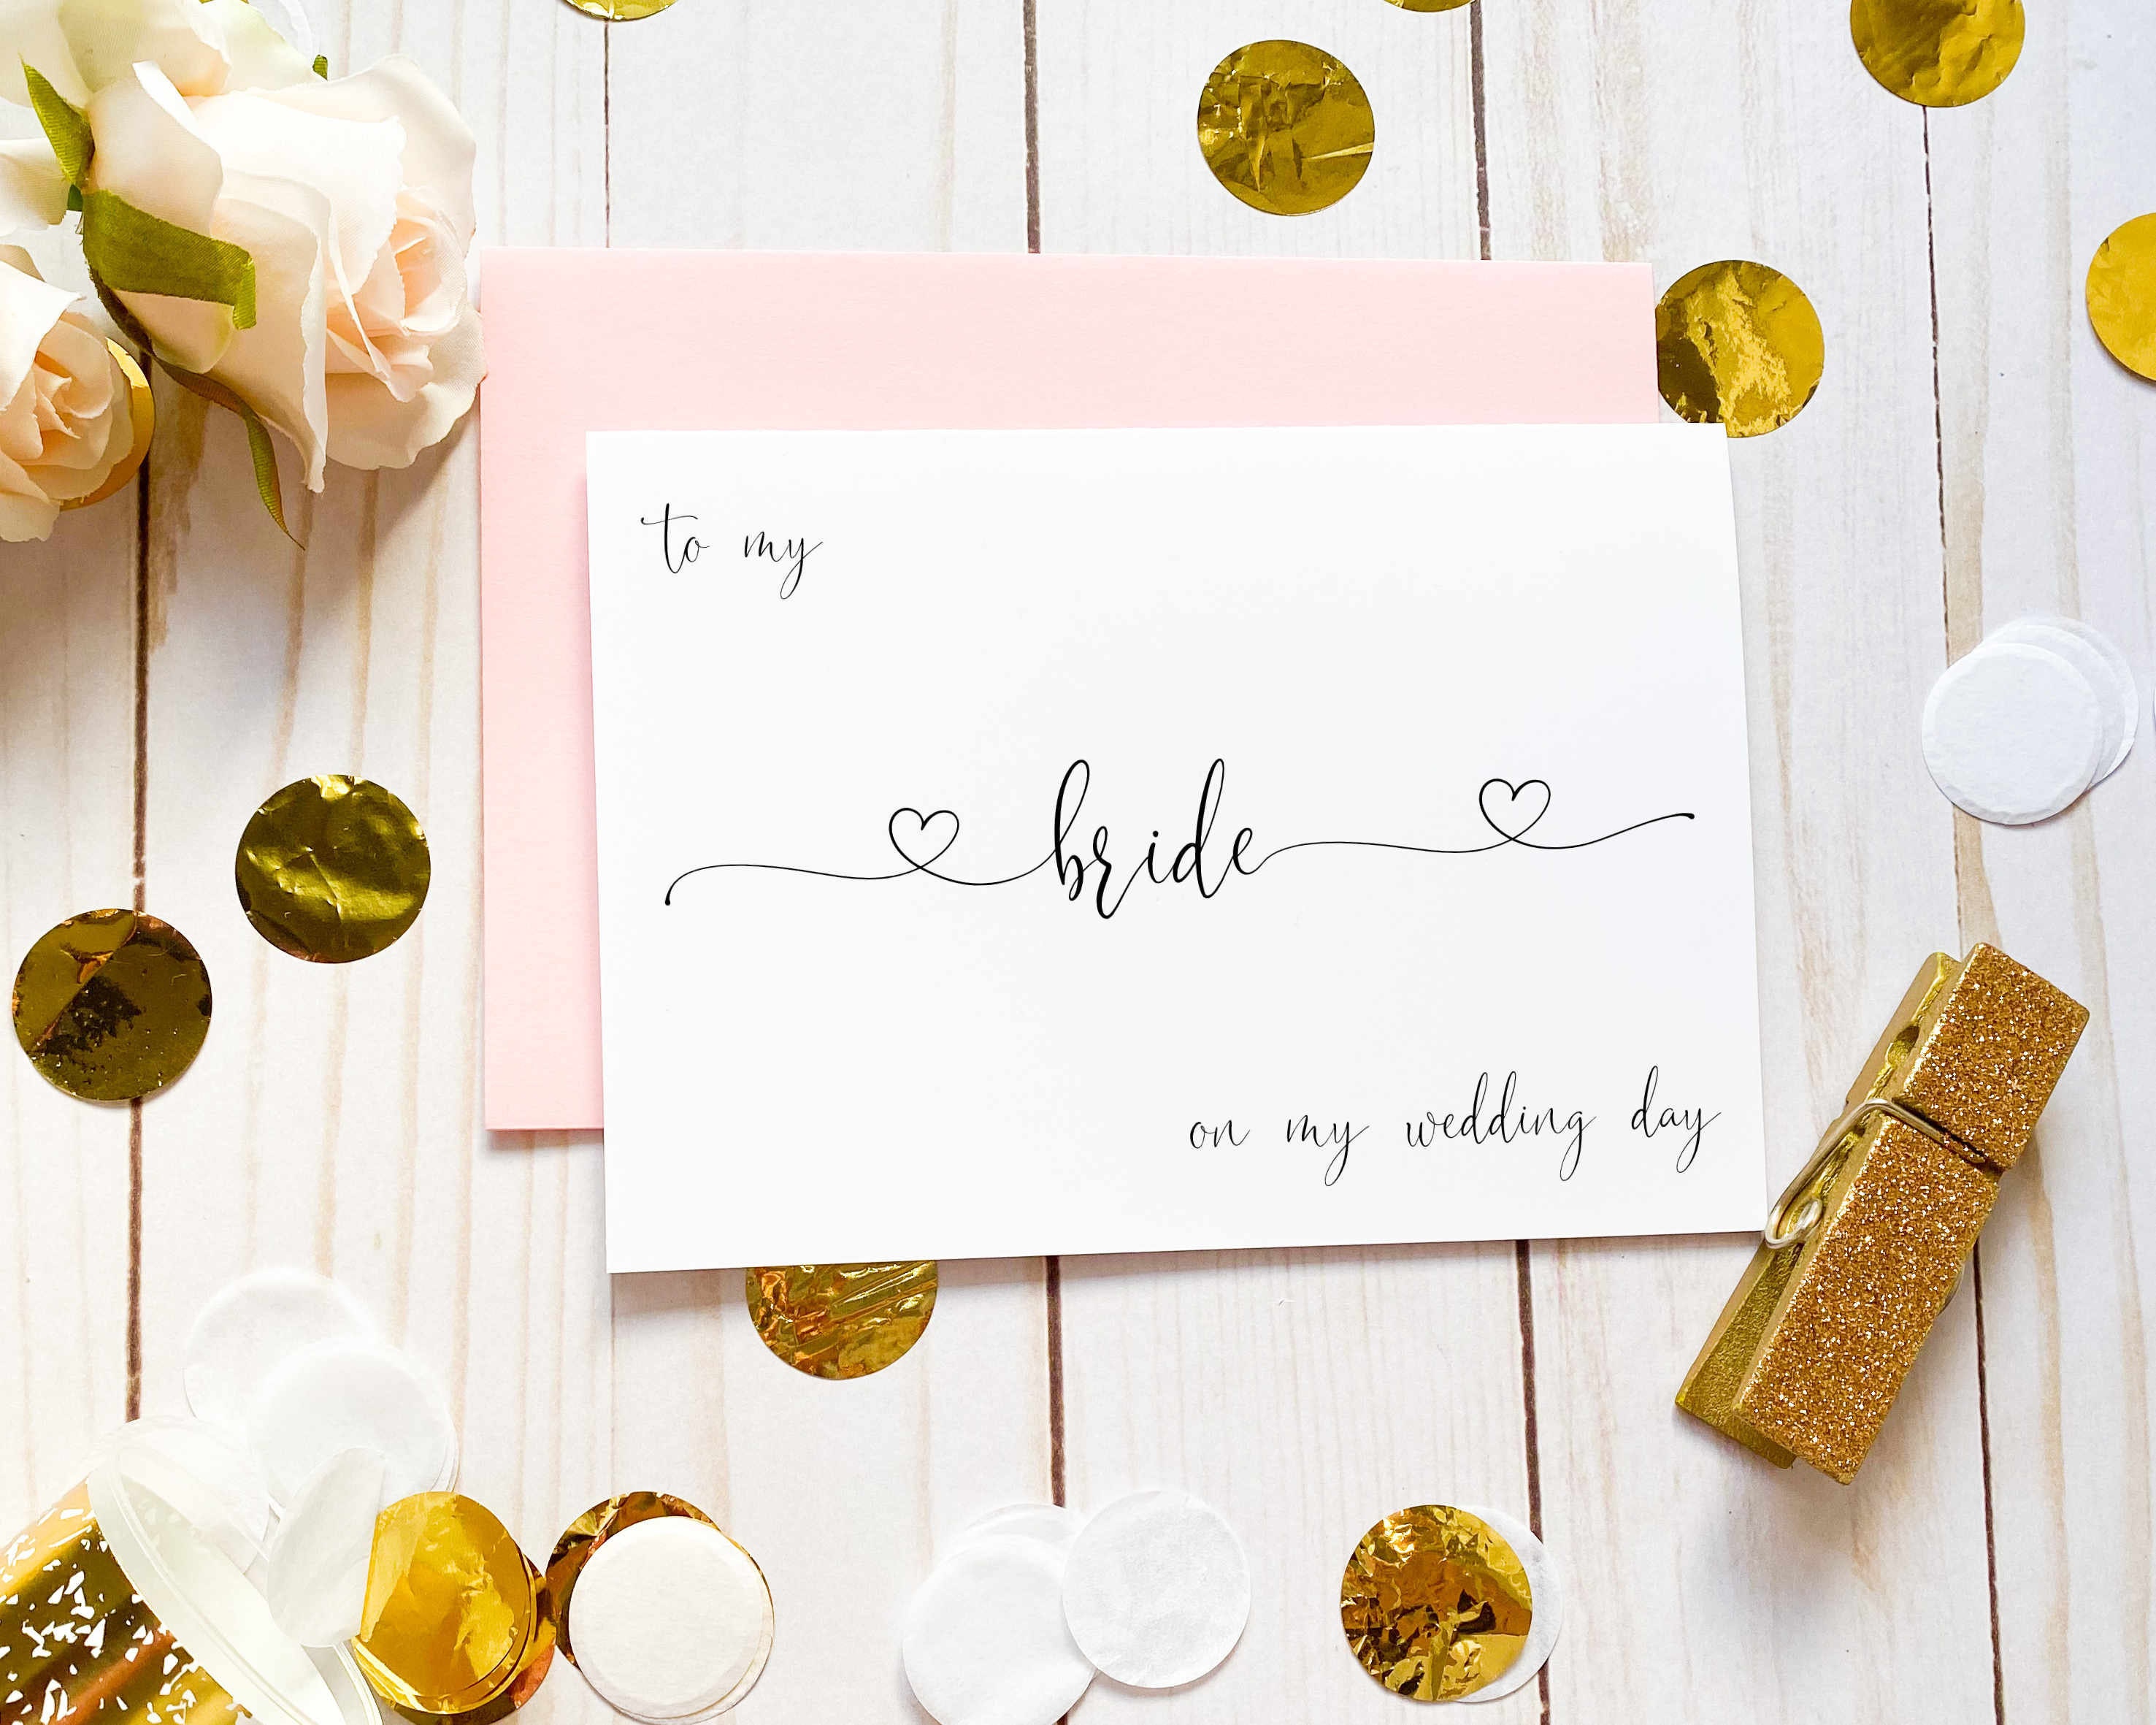 to my
bride
on my wedding day